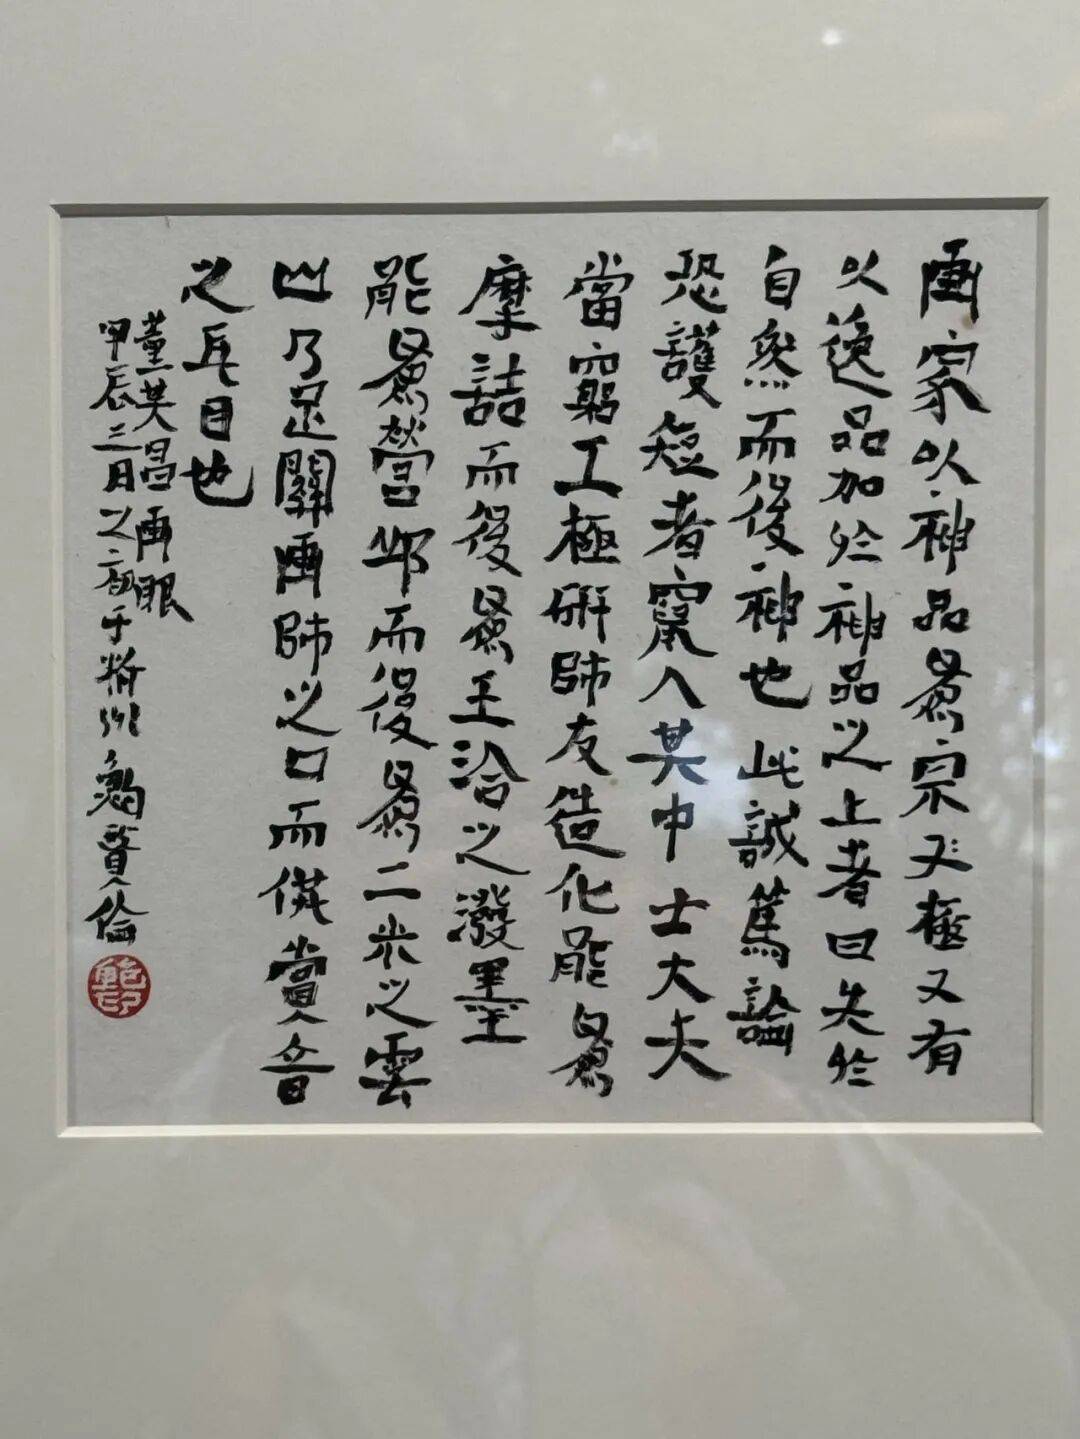 畫家以神品爲宗又極又有
以逸品加於神品之上者曰失於
自然而後神也此誠篤論
恐護短者竄入其中士大夫
當窮工極研師友造化能爲
摩詰而後爲王洽之潑墨
能爲營邱而後爲二米之雲
山乃足關畫師之口而供賞音
之耳目也
董其昌畫眼
甲辰三月之初于 鮑賢倫